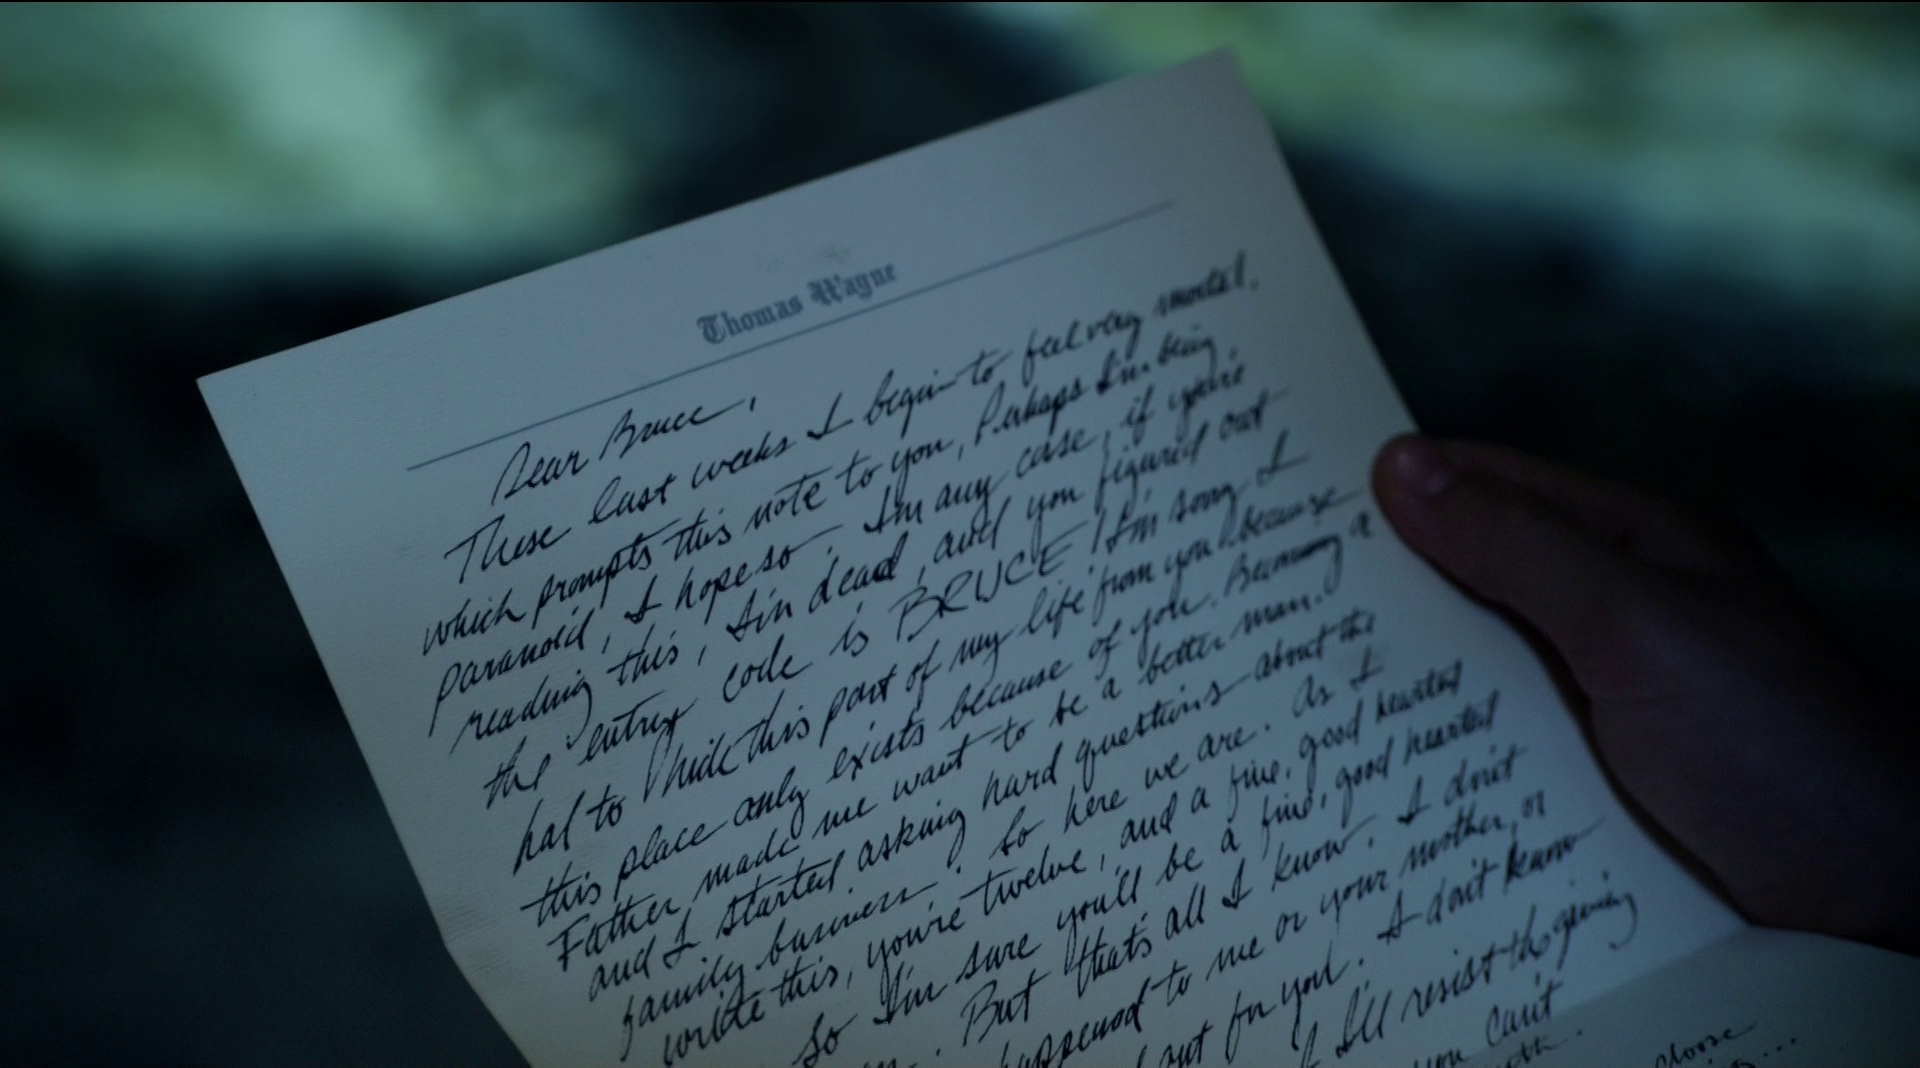 Thomas Wayne
Dear Bruce,
These last weeks I begin to feel very mortal.
which prompts this note to you, Perhaps I'm being,
paranoid, I hope so. In any case, if you're
reading this, I'm dead, and you figured out
the entry code is BRUCE. I'm sorry I
had to hide this part of my life from you because
this place only exists because of you. Becoming a
Father made me want to be a better man.
and I started asking hard questions about the
family business. So here we are. As I
write this, you're twelve, and a fine, good hearted
So I'm sure you'll be a fine, good hearted
But that's all I know. I don't
happened to me or your mother, or
out for you. I don't know
I'll resist the giving
you can't
choose